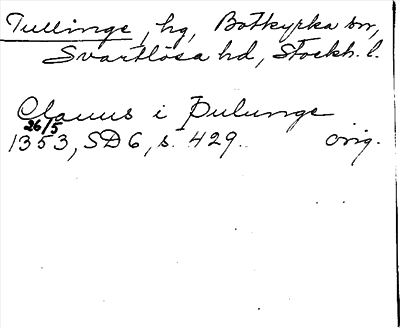 Tullinge, hg, Botkyrka sn,
Svartlösa hd, Stockh. l.
Clauus i Þulunge
26/5
1353, SD 6, s. 429. orig.